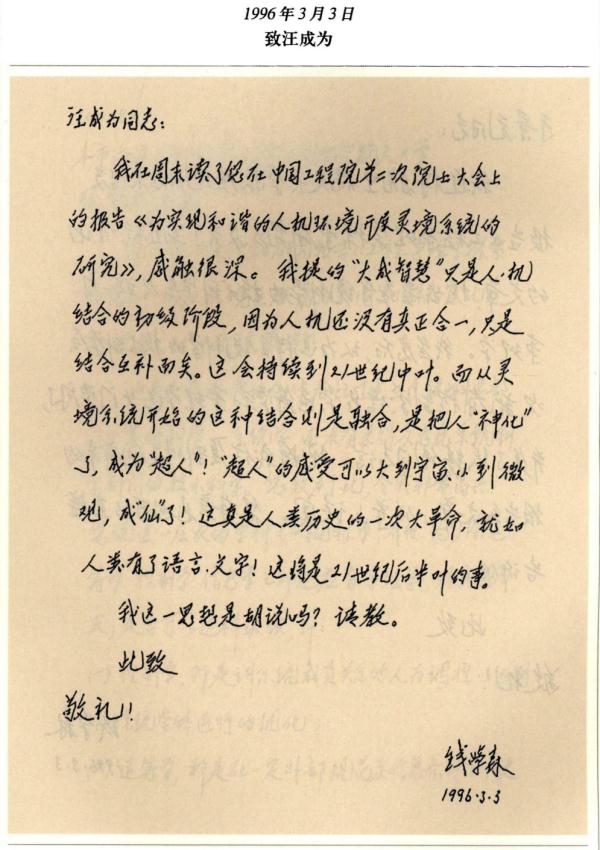 1996年3月3日
致汪成为
汪成为同志:
我在周末读了您在中国工程院第二次院士大会上
的报告《为实现和谐的人机环境开展灵境系统的
研究》,感触很深。我提的“大成智慧”只是人·机
结合的初级阶段,因为人机还没有真正合一,只是
结合互补而矣。这会持续到21世纪中叶。而从灵
境系统开始的这种结合则是融合,是把人“神化”
了,成为“超人”!“超人”的感受可以大到宇宙、小到微
观,成“仙”了!这真是人类历史的一次大革命,就如
人类有了语言、文字!这将是21世纪后半叶的事。
我这一思想是胡说吗?请教。
此致
敬礼!
钱学森
1996.3.3